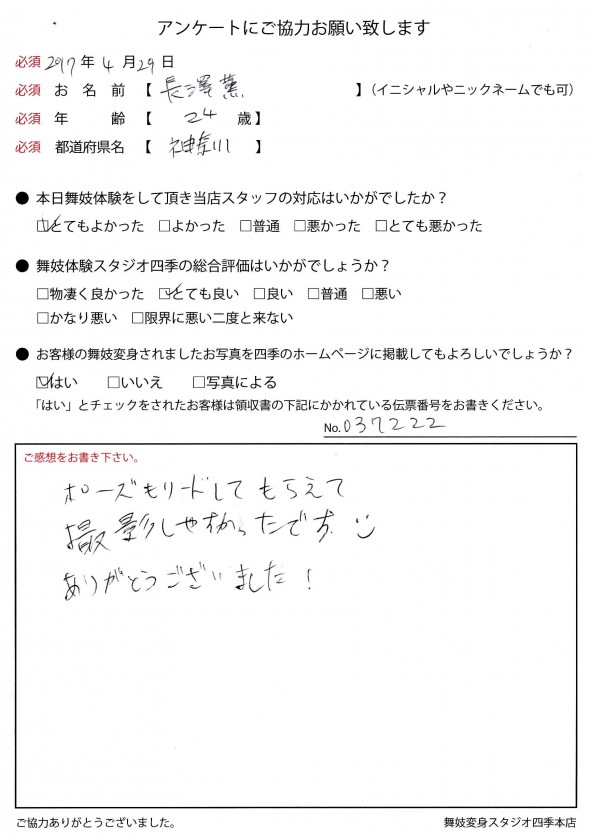 アンケートにご協力お願い致します
必須 2017年 4月29日
必須 お名前【 長澤薫 】（イニシャルやニックネームでも可）
必須 年齢【 24 歳】
必須 都道府県名【 神奈川 】
● 本日舞妓体験をして頂き当店スタッフの対応はいかがでしたか？
☑とても良かった □よかった □普通 □悪かった □とても悪かった
● 舞妓体験スタジオ四季の総合評価はいかがでしょうか？
□物凄く良かった ☑とても良い □良い □普通 □悪い
□かなり悪い □限界に悪い二度と来ない
● お客様の舞妓変身されましたお写真を四季のホームページに掲載してもよろしいでしょうか？
☑はい □いいえ □写真による
「はい」とチェックをされたお客様は領収書の下記にかかれている伝票番号をお書きください。
No. 037222
ご感想をお書き下さい。
ポーズもリードしてもらえて
撮影しやすかったです
ありがとうございました！
ご協力ありがとうございました。
舞妓変身スタジオ四季本店